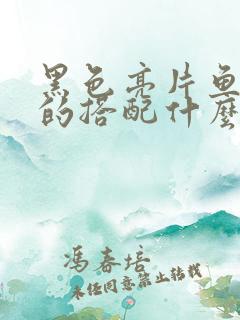 黑色亮片鱼
的搭配什麽
冯春培
未经同意禁止转载